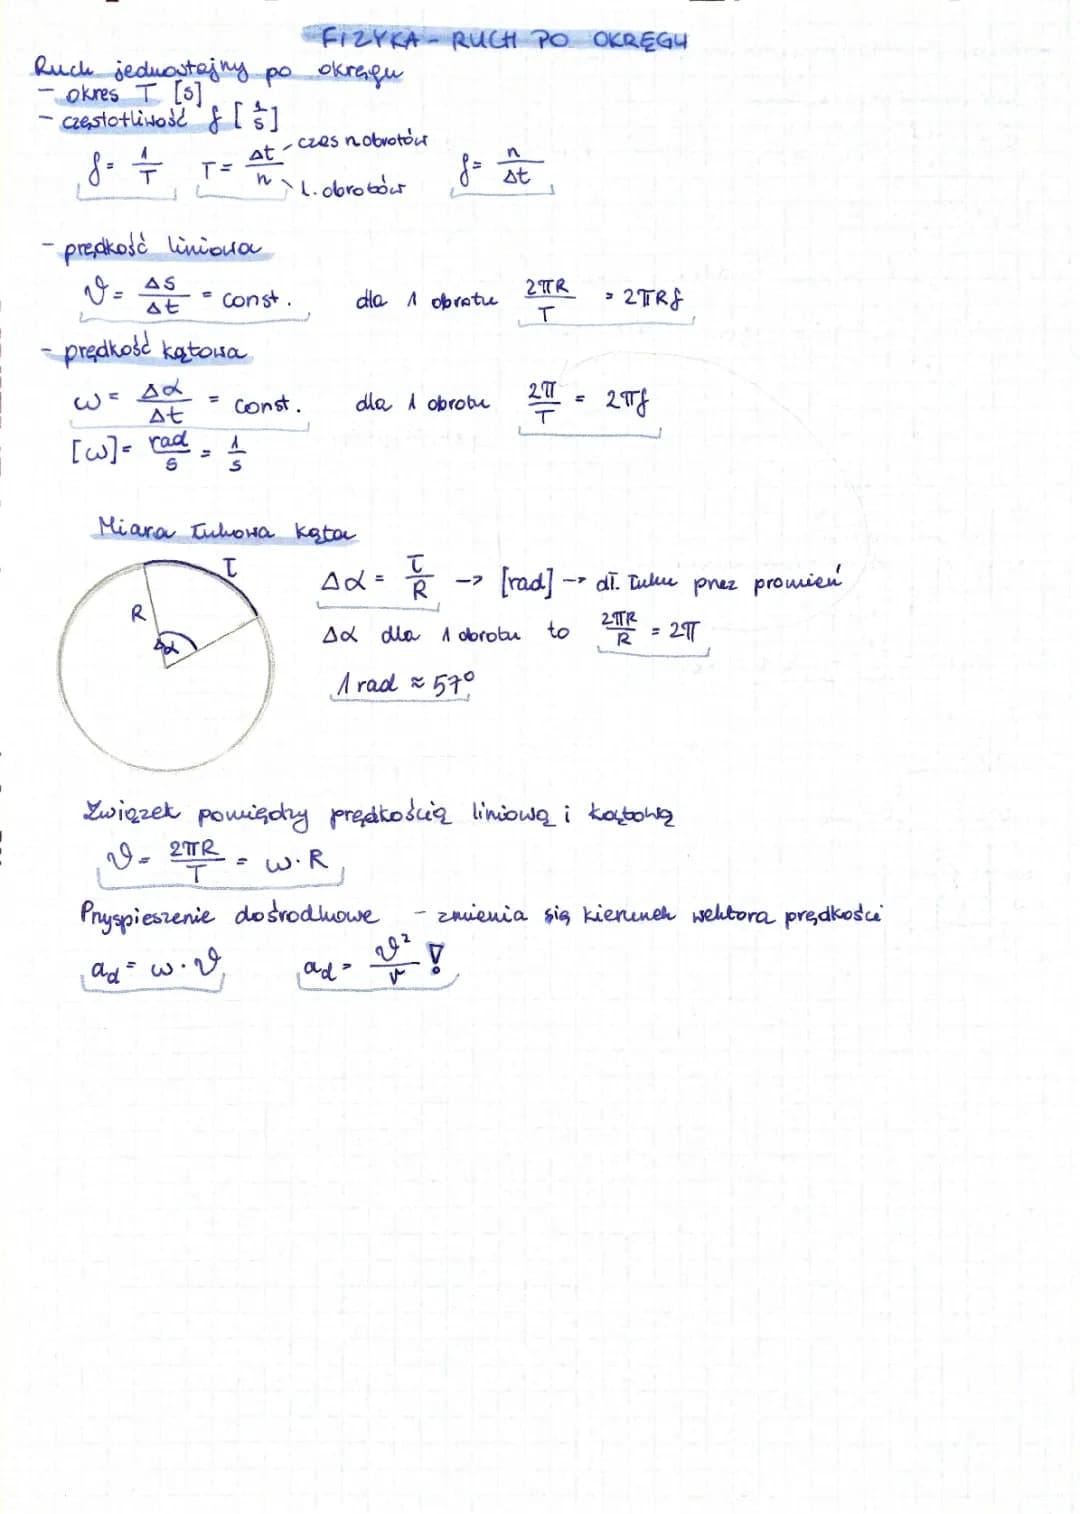 FIZYKA - RUCH PO OKRĘGU
Ruch jednostajny po okręgu
- okres T [s]
- częstotliwość f [1/s]
f = 1/T T = Δt/n - czas n obrotów \ l. obrotów f = n/Δt
- prędkość liniowa
v = ΔS/Δt = const. dla 1 obrotu 2πR/T = 2πRf
- prędkość kątowa
ω = Δα/Δt = const. dla 1 obrotu 2π/T = 2πf
[ω] = rad/s = 1/s
Miara łukowa kąta
Ł
R
Δα
Δα = Ł/R -> [rad] -> dł. łuku przez promień
Δα dla 1 obrotu to 2πR/R = 2π
1 rad ≈ 57°
Związek pomiędzy prędkością liniową i kątową
v = 2πR/T = ω·R
Przyspieszenie dośrodkowe - zmienia się kierunek wektora prędkości
ad = ω·v ad = v²/r !